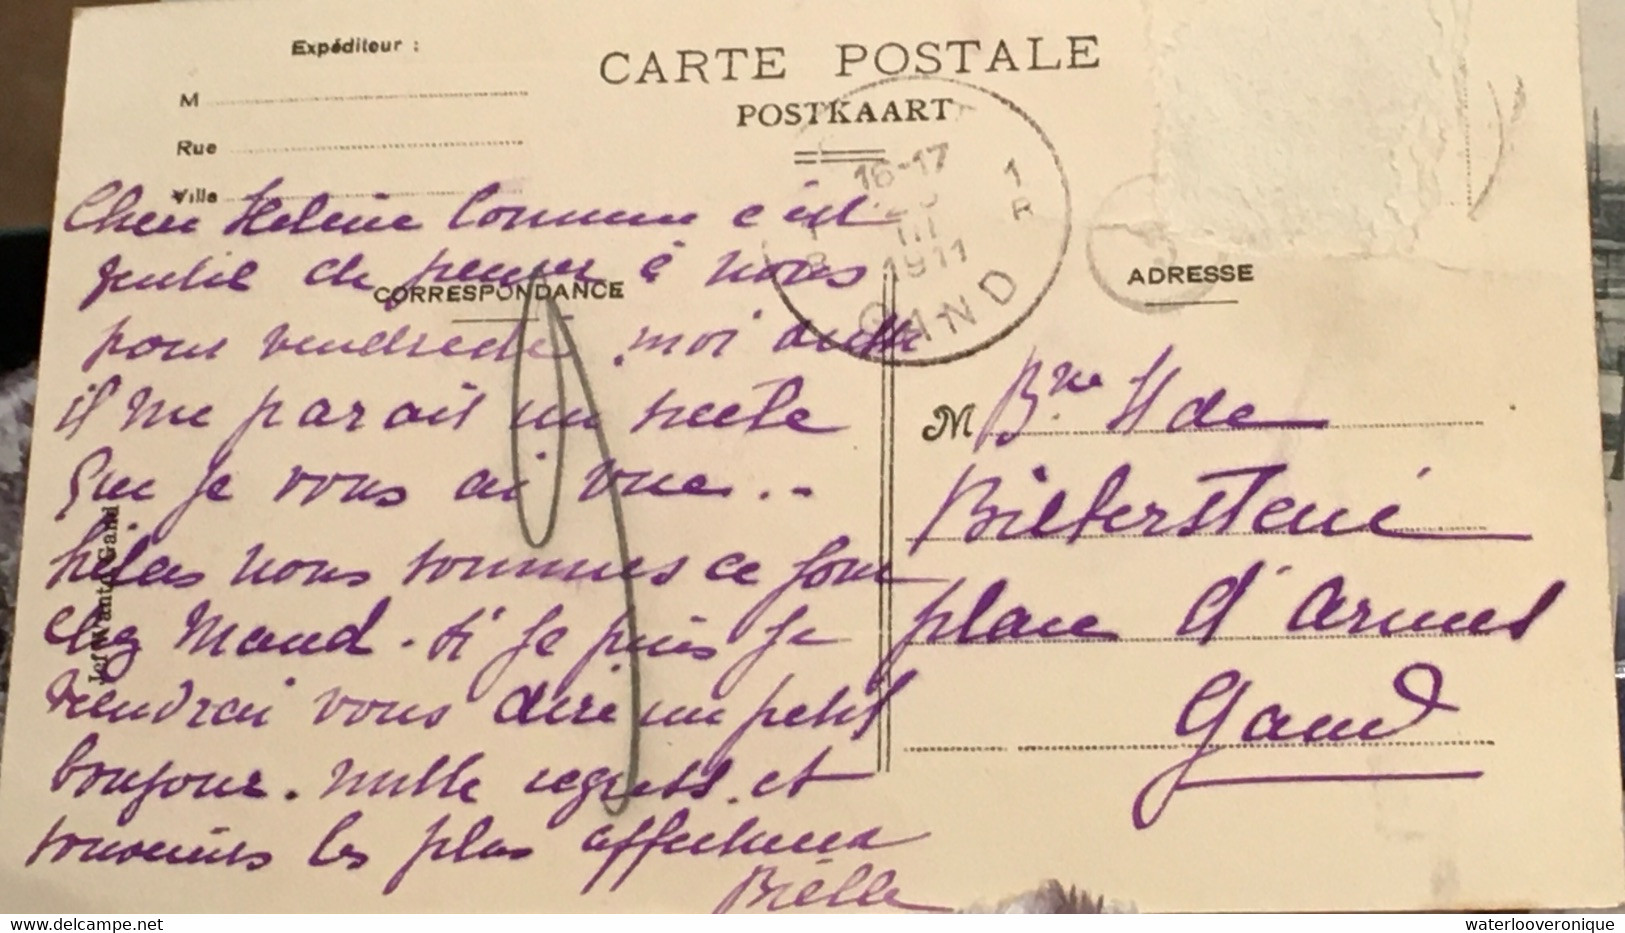 Expéditeur :
M
Rue
Ville
CARTE POSTALE
POSTKAART
16-17
1
III
R
8
1911
GAND
CORRESPONDANCE
ADRESSE
Chere Helene Comme c'est
gentil de penser à nous
pour vendredi moi aussi
il me parait un siecle
Que je vous ai vue..
helas nous sommes ce jour
chez Maud. si je puis je
viendrai vous dire un petit
bonjour. mille regrets et
souvenirs les plus affectueux
Bielle
M Bne H de
Bieberstein
place d'armes
Gand
Gand
waterlooveronique